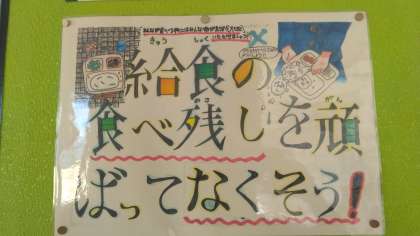 きゅう しょく
給食の
の こ がん
食べ残しを頑
ばってなくそう!